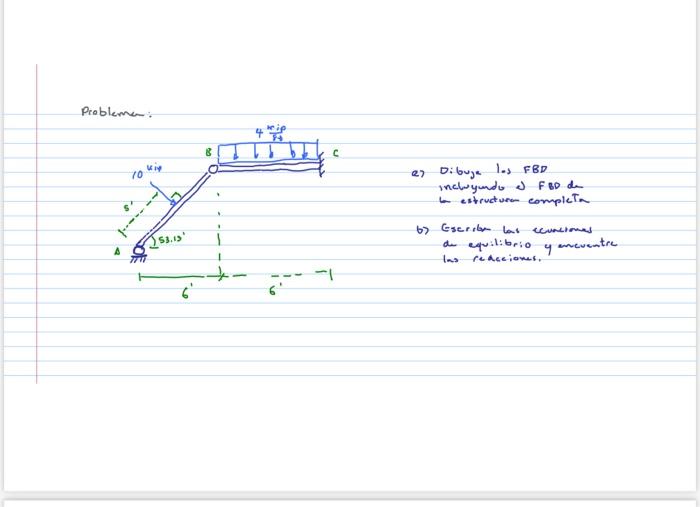 Problema:
4 kip/ft
B
C
10 kip
5'
A
53.13°
6'
6'
a) Dibuje los FBD
incluyendo el FBD de
la estructura completa
b) Escriba las ecuaciones
de equilibrio y encuentre
las reacciones.